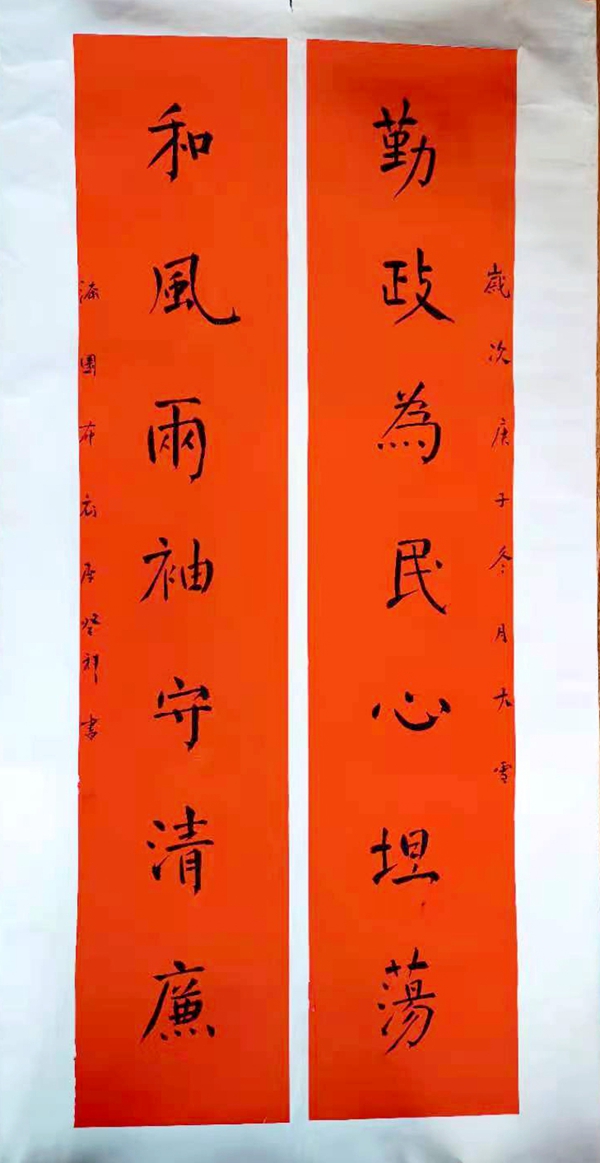 歲次庚子冬月大雪
勤政為民心坦蕩
和風兩袖守清廉
漆園布衣祥書